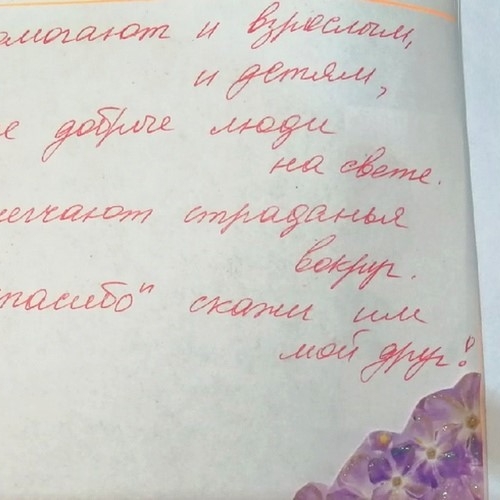 омогают и взрослым,
и детям,
е добрые люди
на свете.
легчают страданья
вокруг.
спасибо" скажи им
мой друг!